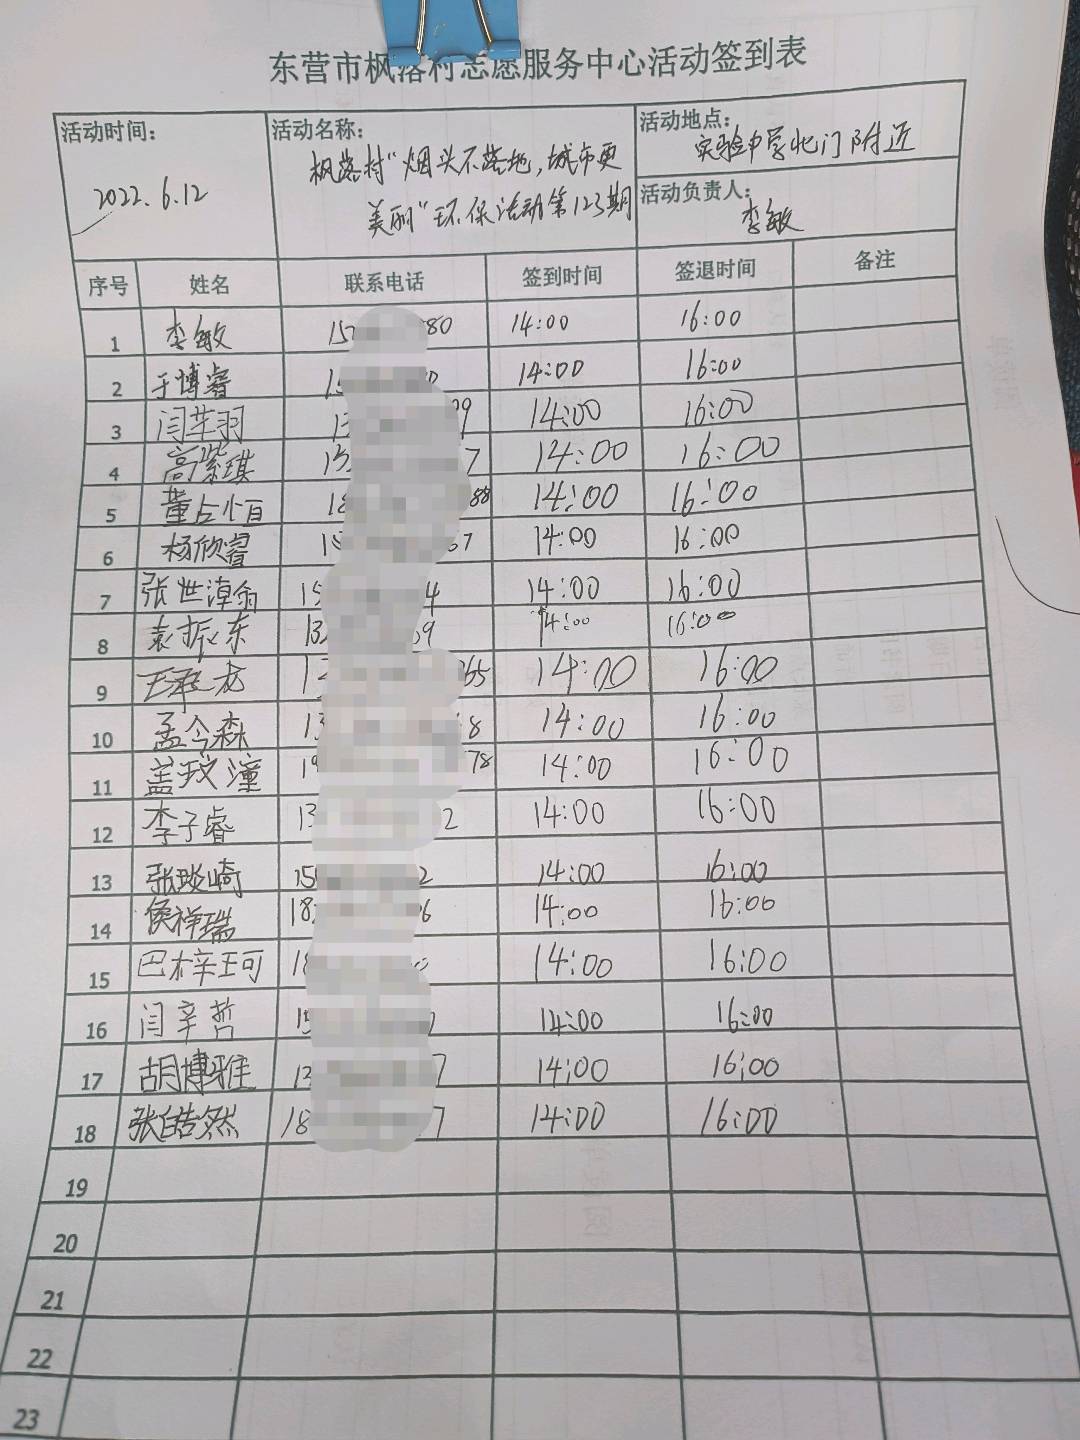 东营市枫落村志愿服务中心活动签到表
活动时间: 活动名称: 活动地点:
2022.6.12 枫落村"烟头不落地,城市更 实验中学北门附近
美丽"环保活动第123期 活动负责人:
李敏
序号 姓名 联系电话 签到时间 签退时间 备注
1 李敏 15 80 14:00 16:00
2 于博睿 15 14:00 16:00
3 闫芊羽 13 99 14:00 16:00
4 高紫琪 13 7 14:00 16:00
5 董占恒 18 88 14:00 16:00
6 杨欣睿 15 57 14:00 16:00
7 张世 15 4 14:00 16:00
8 袁振东 13 69 14:00 16:00
9 王承龙 1 65 14:00 16:00
10 孟令森 13 8 14:00 16:00
11 盖玟潼 19 78 14:00 16:00
12 李子睿 13 2 14:00 16:00
13 张琰崎 150 2 14:00 16:00
14 侯祥瑞 18 06 14:00 16:00
15 巴梓珂 18 14:00 16:00
16 闫辛哲 15 14:00 16:00
17 胡博雅 13 7 14:00 16:00
18 张皓然 18 7 14:00 16:00
19
20
21
22
23